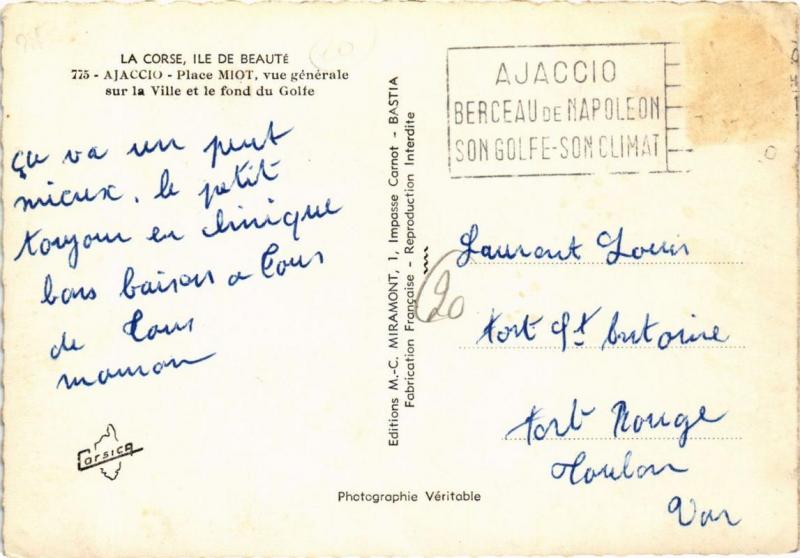 LA CORSE, ILE DE BEAUTÉ
775 - AJACCIO - Place MIOT, vue générale
sur la Ville et le fond du Golfe
ça va un peut
mieux. le petit
toujour en clinique
bons baisers a Tous
de Tous
maman
Corsica
Editions M.-C. MIRAMONT, 1, Impasse Carnot - BASTIA
Fabrication Française - Reproduction Interdite
Photographie Véritable
AJACCIO
BERCEAU DE NAPOLEON
SON GOLFE-SON CLIMAT
20
Laurent Louis
fort St Antoine
fort Rouge
Toulon
Var